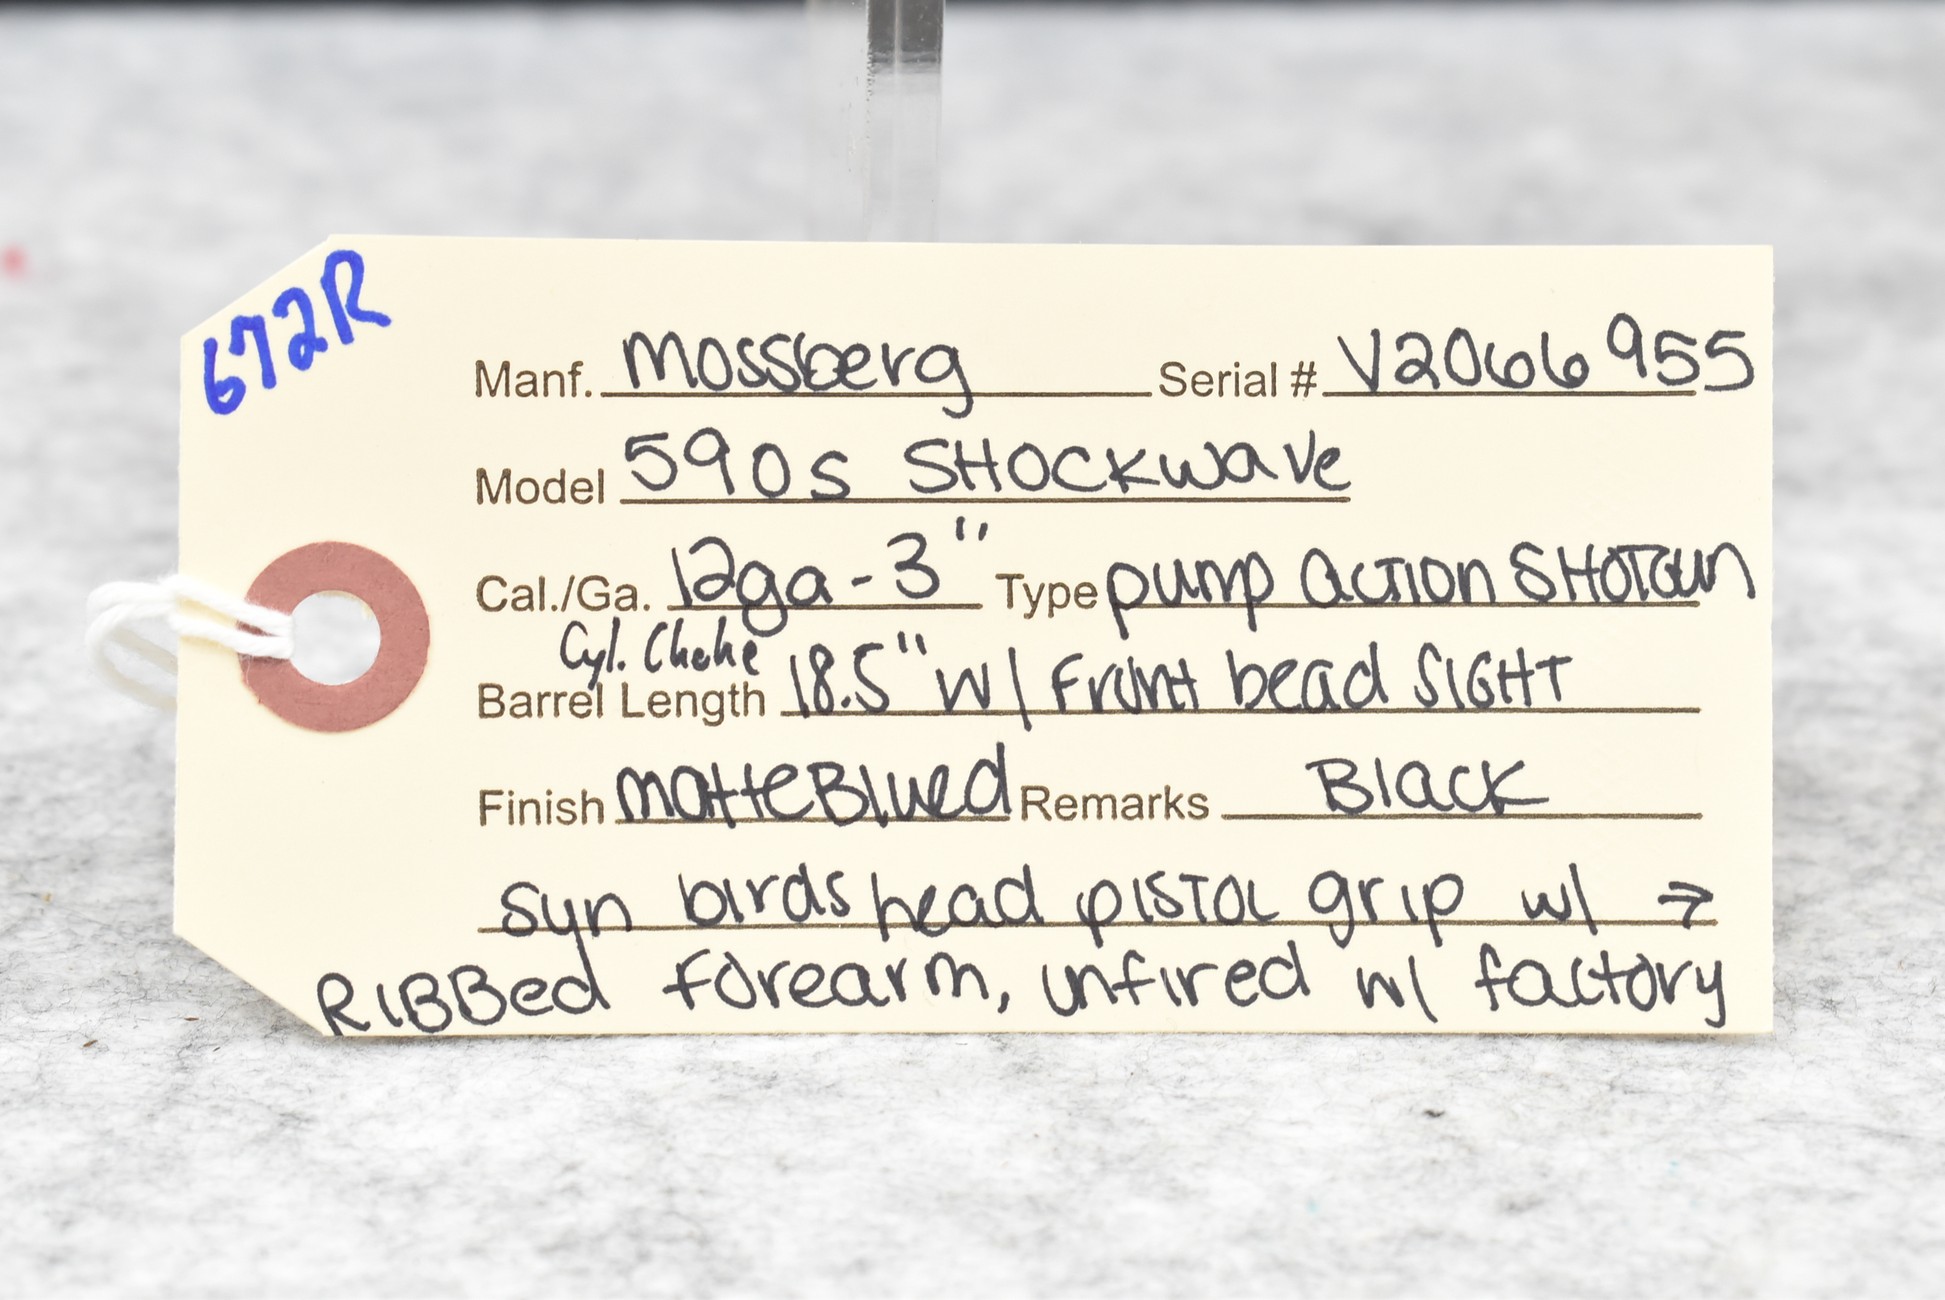 672R
Manf. Mossberg Serial # V2066955
Model 590S SHOCKWAVE
Cal./Ga. 12ga-3" Type pump action SHOTGUN
Cyl. Choke
Barrel Length 18.5" w/ Front bead SIGHT
Finish matte Blued Remarks Black
syn birds head PISTOL grip w/ →
RIBBed forearm, unfired w/ factory